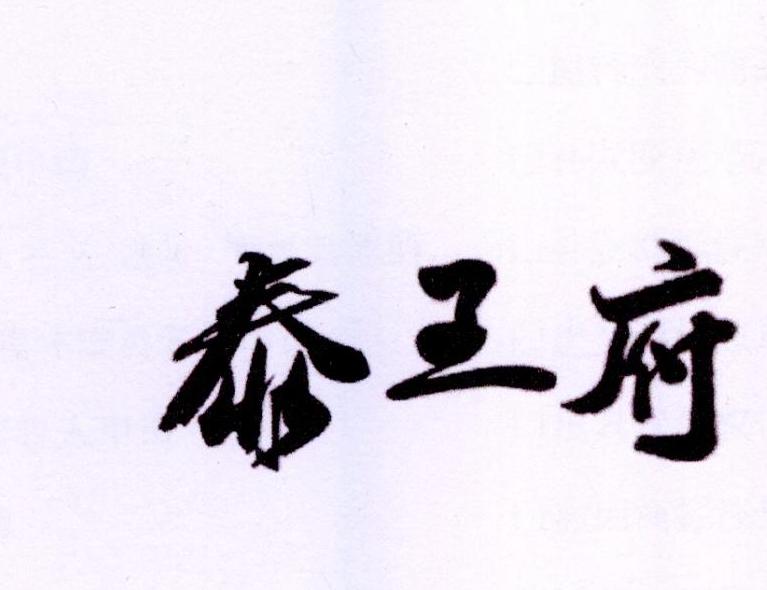 泰王府